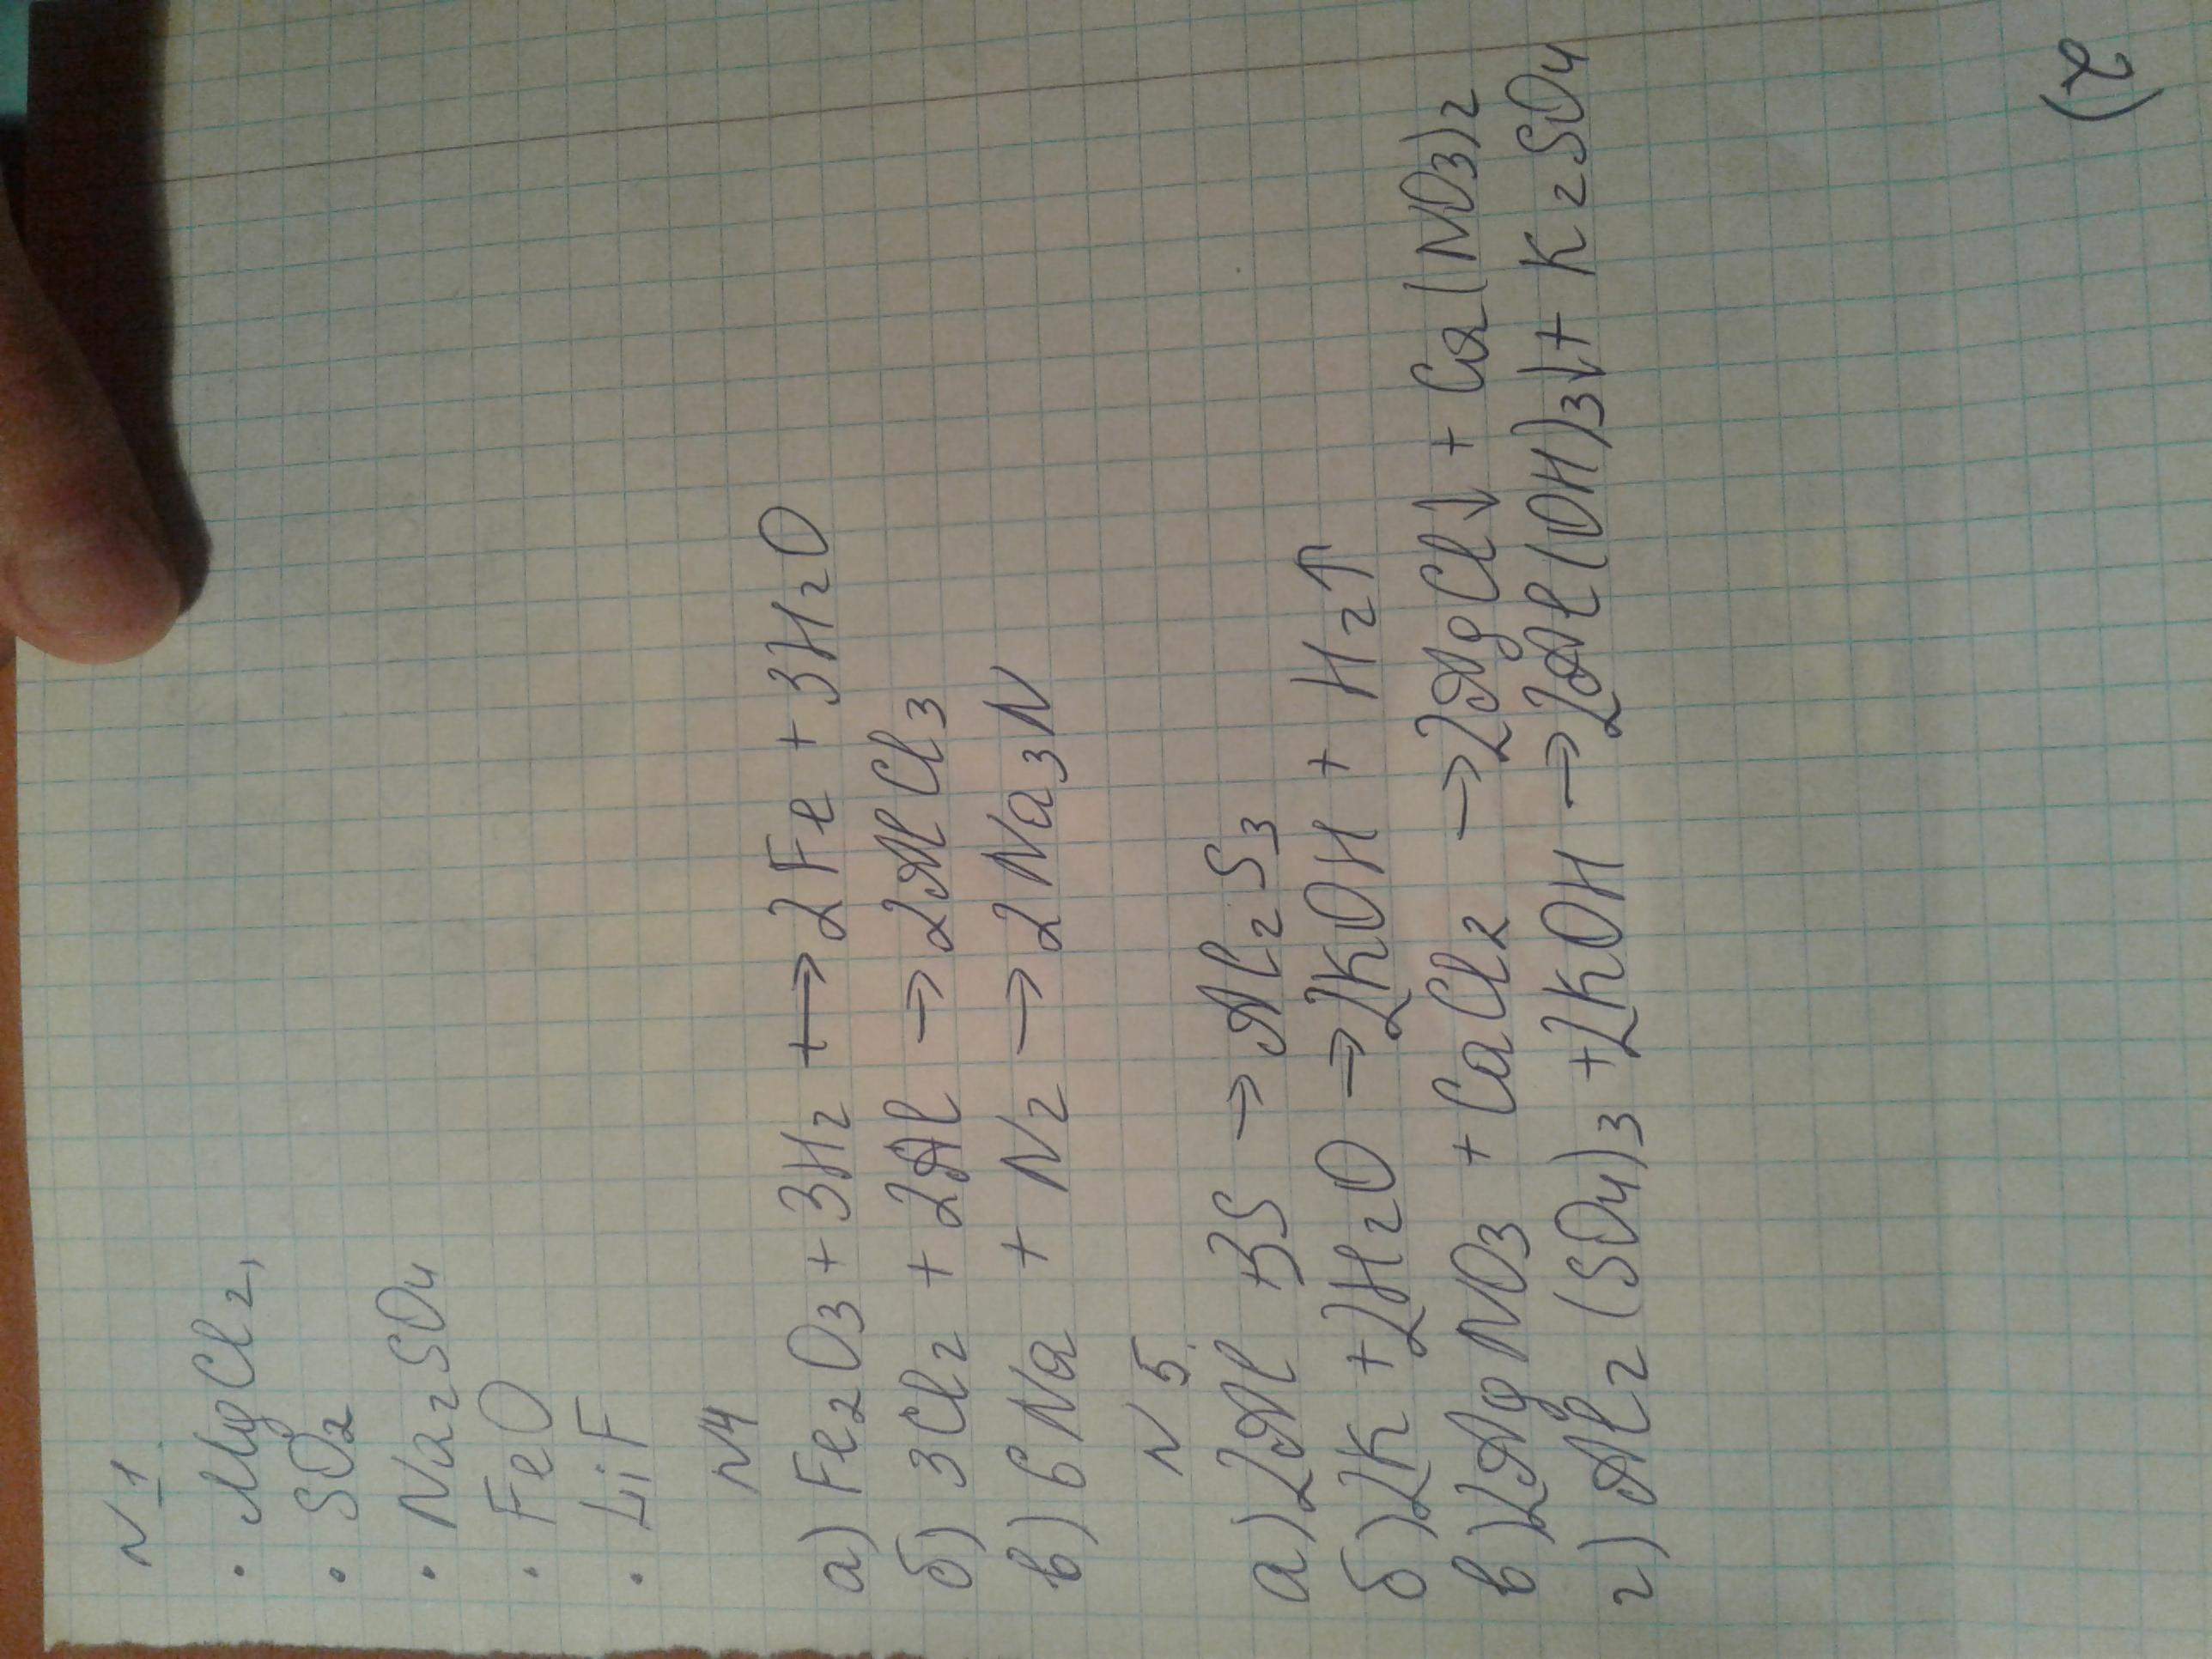 N 1
· MgCl2,
· SO2
· Na2SO4
· FeO
· LiF
N4
а) Fe2O3 + 3H2 → 2Fe + 3H2O
б) 3Cl2 + 2Al → 2AlCl3
в) 6Na + N2 → 2Na3N
N 5
а) 2Al + 3S → Al2S3
б) 2K + 2H2O → 2KOH + H2↑
в) 2AgNO3 + CaCl2 → 2AgCl↓ + Ca(NO3)2
г) Al2(SO4)3 + 2KOH → 2Al(OH)3↓ + K2SO4